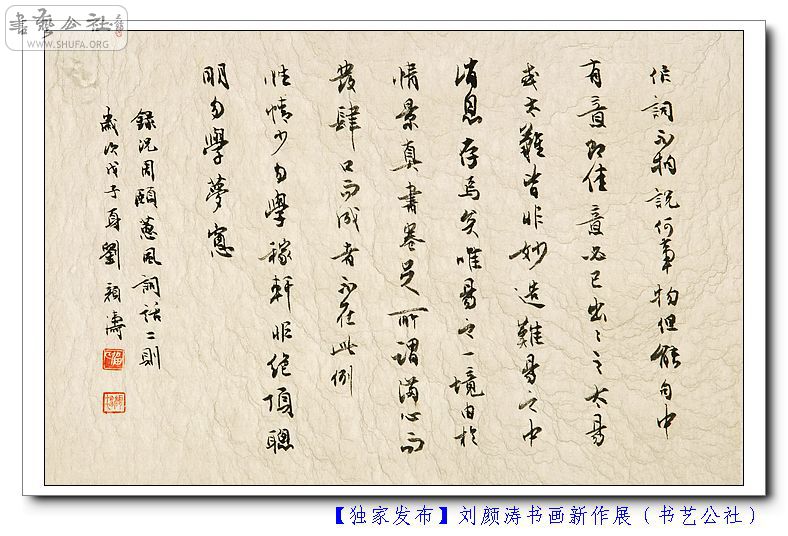 書藝公社
WWW.SHUFA.ORG
作詞不拘說何事物但能句中
有意即佳意必己出々之太易
或太難皆非妙造難易之中
消息存焉矣唯易之一境由於
情景真書卷足所謂滿心而
發肆口而成者不在此例
性情少勿學稼軒非絕頂聰
明勿學夢窗
錄況周頤蕙風詞話二則
歲次戊子夏劉顏濤
【独家发布】刘颜涛书画新作展（书艺公社）